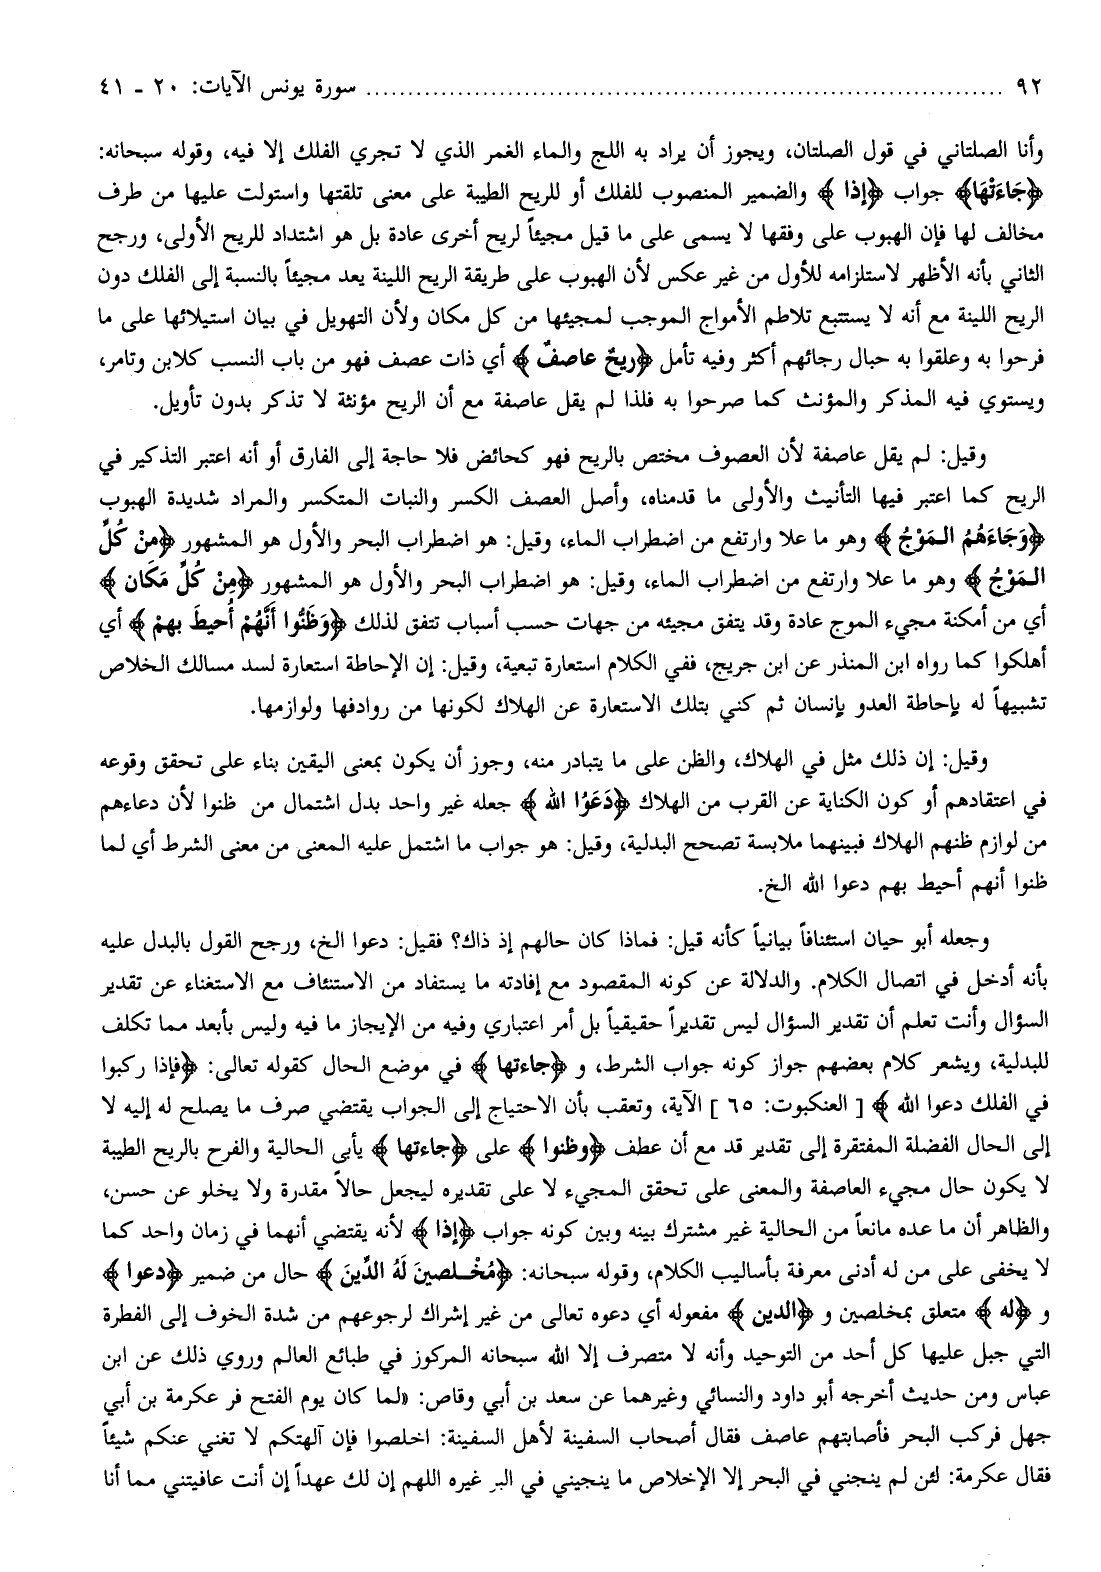 ٩٢ ........................................................................ سورة يونس الآيات: ٢٠ - ٤١
وأنا الصلتاني في قول الصلتان، ويجوز أن يراد به اللج والماء الغمر الذي لا تجري الفلك إلا فيه، وقوله سبحانه:
﴿جَاءَتْهَا﴾ جواب ﴿إذا﴾ والضمير المنصوب للفلك أو للريح الطيبة على معنى تلقتها واستولت عليها من طرف
مخالف لها فإن الهبوب على وفقها لا يسمى على ما قيل مجيئاً لريح أخرى عادة بل هو اشتداد للريح الأولى، ورجح
الثاني بأنه الأظهر لاستلزامه للأول من غير عكس لأن الهبوب على طريقة الريح اللينة يعد مجيئاً بالنسبة إلى الفلك دون
الريح اللينة مع أنه لا يستتبع تلاطم الأمواج الموجب لمجيئها من كل مكان ولأن التهويل في بيان استيلائها على ما
فرحوا به وعلقوا به حبال رجائهم أكثر وفيه تأمل ﴿ريحٌ عاصفٌ﴾ أي ذات عصف فهو من باب النسب كلابن وتامر،
ويستوي فيه المذكر والمؤنث كما صرحوا به فلذا لم يقل عاصفة مع أن الريح مؤنثة لا تذكر بدون تأويل.
وقيل: لم يقل عاصفة لأن العصوف مختص بالريح فهو كحائض فلا حاجة إلى الفارق أو أنه اعتبر التذكير في
الريح كما اعتبر فيها التأنيث والأولى ما قدمناه، وأصل العصف الكسر والنبات المتكسر والمراد شديدة الهبوب
﴿وَجَاءَهُمُ المَوْجُ﴾ وهو ما علا وارتفع من اضطراب الماء، وقيل: هو اضطراب البحر والأول هو المشهور ﴿مِنْ كُلِّ
المَوْجُ﴾ وهو ما علا وارتفع من اضطراب الماء، وقيل: هو اضطراب البحر والأول هو المشهور ﴿مِنْ كُلِّ مَكَان﴾
أي من أمكنة مجيء الموج عادة وقد يتفق مجيئه من جهات حسب أسباب تتفق لذلك ﴿وَظَنُّوا أَنَّهُمْ أُحيطَ بهمْ﴾ أي
أهلكوا كما رواه ابن المنذر عن ابن جريج، ففي الكلام استعارة تبعية، وقيل: إن الإحاطة استعارة لسد مسالك الخلاص
تشبيهاً له بإحاطة العدو بإنسان ثم كني بتلك الاستعارة عن الهلاك لكونها من روادفها ولوازمها.
وقيل: إن ذلك مثل في الهلاك، والظن على ما يتبادر منه، وجوز أن يكون بمعنى اليقين بناء على تحقق وقوعه
في اعتقادهم أو كون الكناية عن القرب من الهلاك ﴿دَعَوُا الله﴾ جعله غير واحد بدل اشتمال من ظنوا لأن دعاءهم
من لوازم ظنهم الهلاك فبينهما ملابسة تصحح البدلية، وقيل: هو جواب ما اشتمل عليه المعنى من معنى الشرط أي لما
ظنوا أنهم أحيط بهم دعوا الله الخ.
وجعله أبو حيان استئنافاً بيانياً كأنه قيل: فماذا كان حالهم إذ ذاك؟ فقيل: دعوا الخ، ورجح القول بالبدل عليه
بأنه أدخل في اتصال الكلام. والدلالة عن كونه المقصود مع إفادته ما يستفاد من الاستئناف مع الاستغناء عن تقدير
السؤال وأنت تعلم أن تقدير السؤال ليس تقديراً حقيقياً بل أمر اعتباري وفيه من الإيجاز ما فيه وليس بأبعد مما تكلف
للبدلية، ويشعر كلام بعضهم جواز كونه جواب الشرط، و ﴿جاءتها﴾ في موضع الحال كقوله تعالى: ﴿فإذا ركبوا
في الفلك دعوا الله﴾ [ العنكبوت: ٦٥ ] الآية، وتعقب بأن الاحتياج إلى الجواب يقتضي صرف ما يصلح له إليه لا
إلى الحال الفضلة المفتقرة إلى تقدير قد مع أن عطف ﴿وظنوا﴾ على ﴿جاءتها﴾ يأبى الحالية والفرح بالريح الطيبة
لا يكون حال مجيء العاصفة والمعنى على تحقق المجيء لا على تقديره ليجعل حالاً مقدرة ولا يخلو عن حسن،
والظاهر أن ما عده مانعاً من الحالية غير مشترك بينه وبين كونه جواب ﴿إذا﴾ لأنه يقتضي أنهما في زمان واحد كما
لا يخفى على من له أدنى معرفة بأساليب الكلام، وقوله سبحانه: ﴿مُخْلصينَ لَهُ الدِّينَ﴾ حال من ضمير ﴿دعوا﴾
و ﴿له﴾ متعلق بمخلصين و ﴿الدين﴾ مفعوله أي دعوه تعالى من غير إشراك لرجوعهم من شدة الخوف إلى الفطرة
التي جبل عليها كل أحد من التوحيد وأنه لا متصرف إلا الله سبحانه المركوز في طبائع العالم وروي ذلك عن ابن
عباس ومن حديث أخرجه أبو داود والنسائي وغيرهما عن سعد بن أبي وقاص: «لما كان يوم الفتح فر عكرمة بن أبي
جهل فركب البحر فأصابتهم عاصف فقال أصحاب السفينة لأهل السفينة: اخلصوا فإن آلهتكم لا تغني عنكم شيئاً
فقال عكرمة: لئن لم ينجني في البحر إلا الإخلاص ما ينجيني في البر غيره اللهم إن لك عهداً إن أنت عافيتني مما أنا